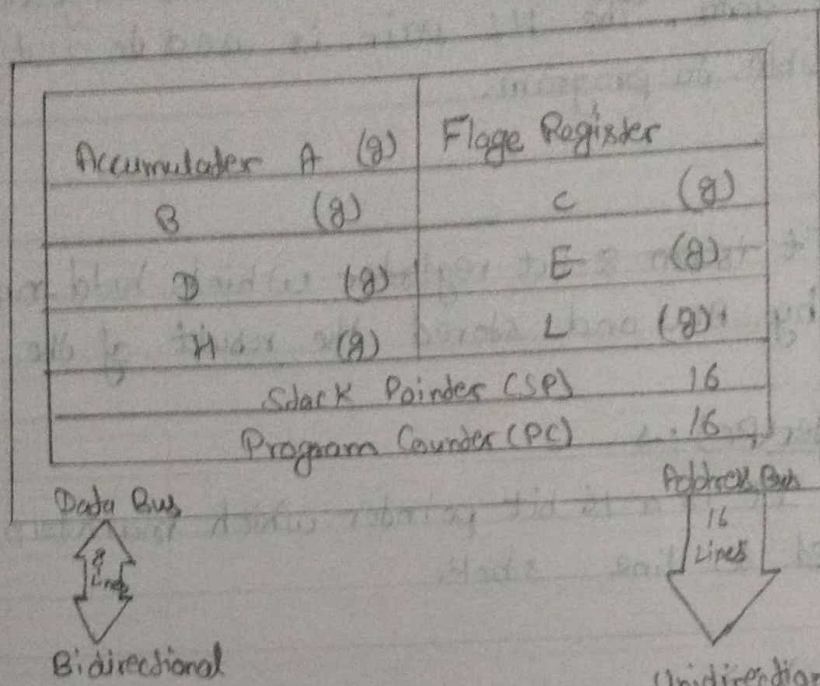 Accumulater A (8)
Flage Register
B (8)
C (8)
D (8)
E (8)
H (8)
L (8)
Stack Pointer (SP) 16
Program Counter (PC) 16
Data Bus
8
Lines
Bidirectional
Address Bus
16
Lines